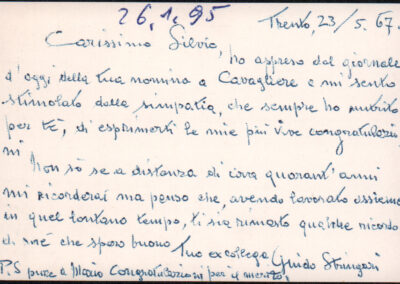 26.1.95
Trento, 23/5.67.
Carissimo Silvio,
ho appreso dal giornale
d'oggi della tua nomina a Cavagliere e mi sento
stimolato dalla simpatia, che sempre ho nutrito
per tè, di esprimerti le mie più vive congratulazio
ni
Non sò se a distanza di circa quarant'anni
mi ricorderai ma penso che, avendo lavorato assieme
in quel lontano tempo, ti sia rimasto qualche ricordo
di mè che spero buono
Tuo ex collega Guido
P.S pure a Mario Congratulazioni per il merito.